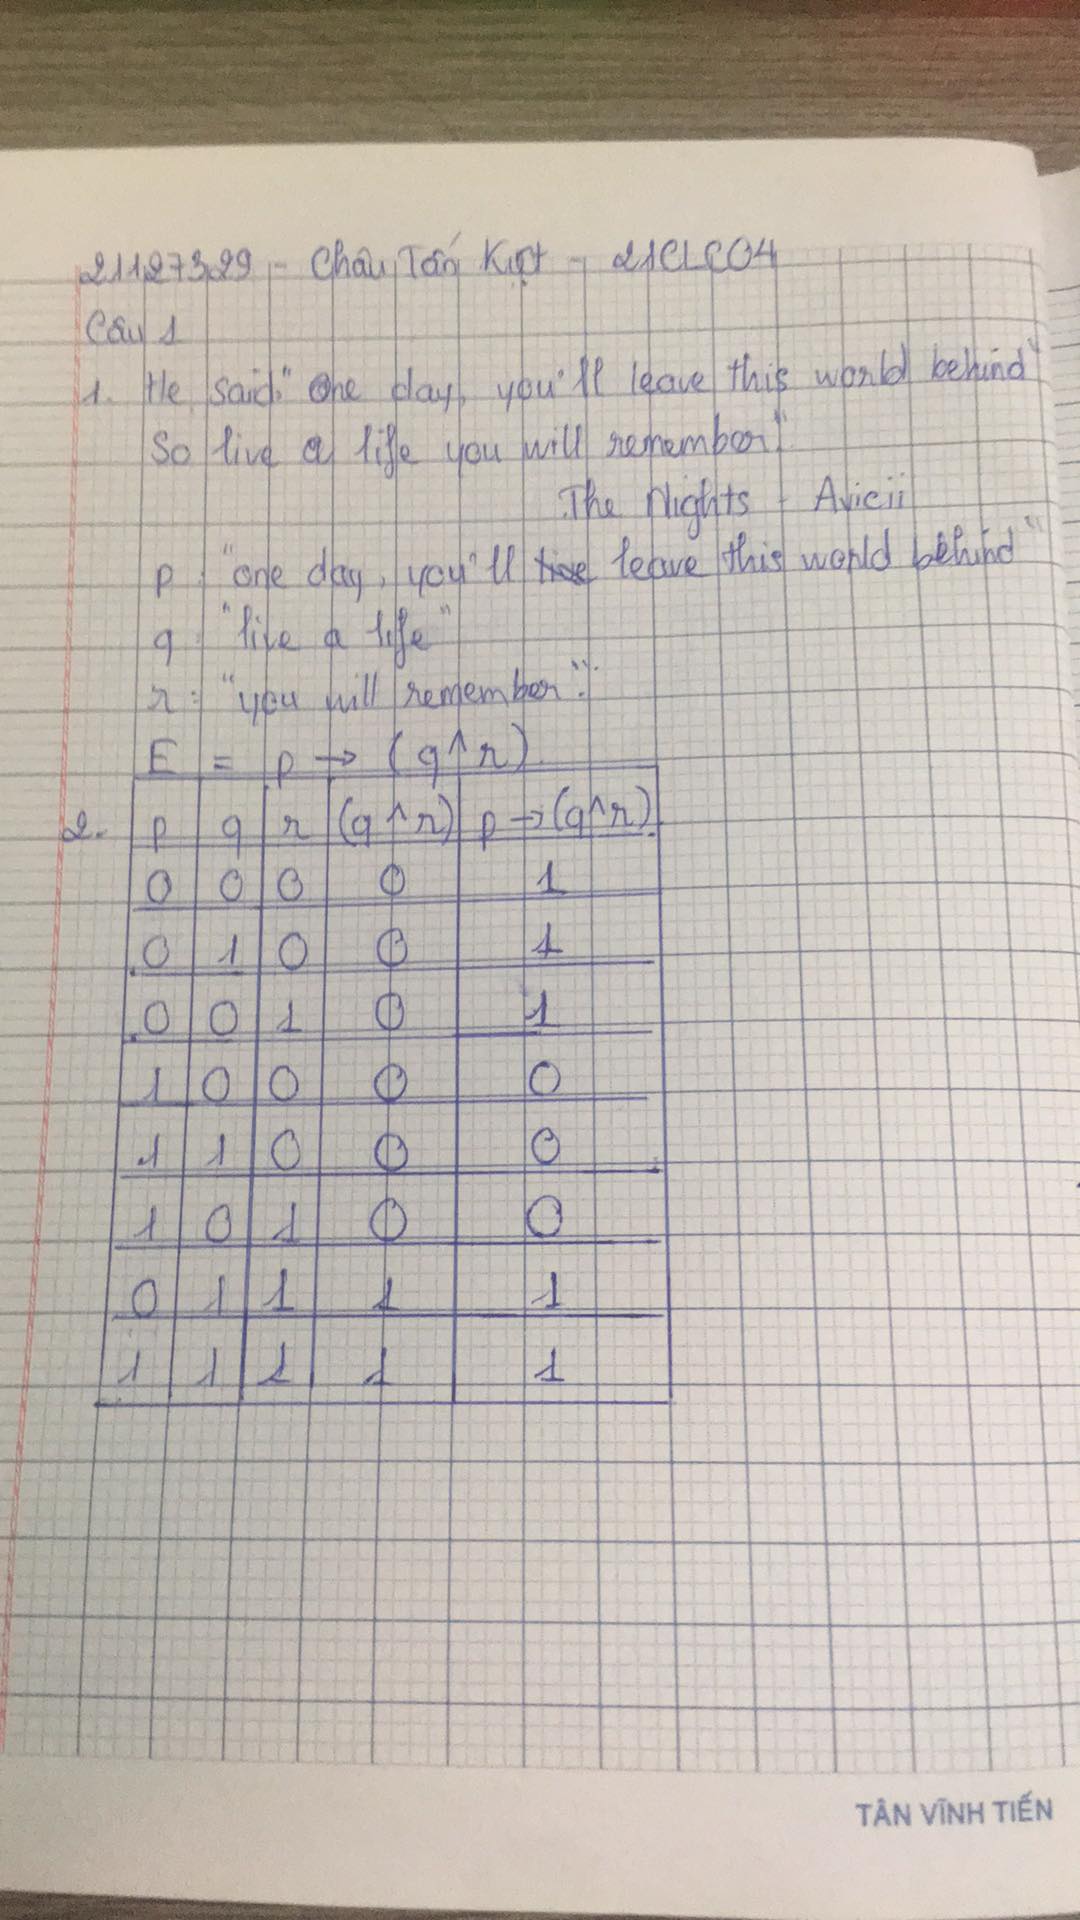 21127329 - Châu Tấn Kiệt - 21CLC04
Câu 1
1. He said "One day, you'll leave this world behind"
So live a life you will remember"
The Nights - Avicii
p: "one day, you'll leave this world behind"
q: "live a life"
r: "you will remember".
E = p → (q ^ r)
2. p q r (q ^ r) p → (q ^ r)
0 0 0 0 1
0 1 0 0 1
0 0 1 0 1
1 0 0 0 0
1 1 0 0 0
1 0 1 0 0
0 1 1 1 1
1 1 1 1 1
TÂN VĨNH TIẾN